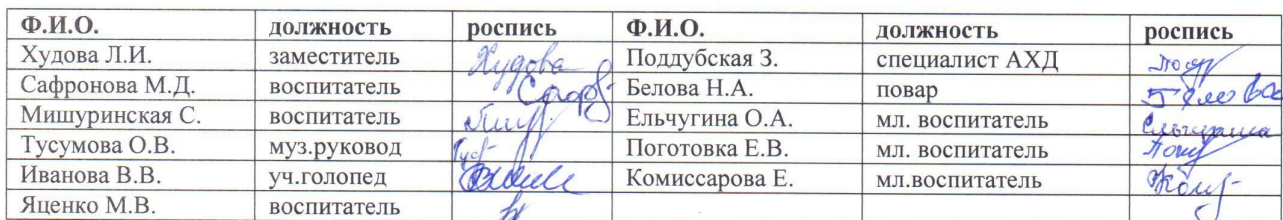 Ф.И.О. должность роспись Ф.И.О. должность роспись
Худова Л.И. заместитель Худова Поддубская З. специалист АХД
Сафронова М.Д. воспитатель Белова Н.А. повар Белова
Мишуринская С. воспитатель Ельчугина О.А. мл. воспитатель Ельчугина
Тусумова О.В. муз.руковод Поготовка Е.В. мл. воспитатель
Иванова В.В. уч.голопед Комиссарова Е. мл.воспитатель
Яценко М.В. воспитатель